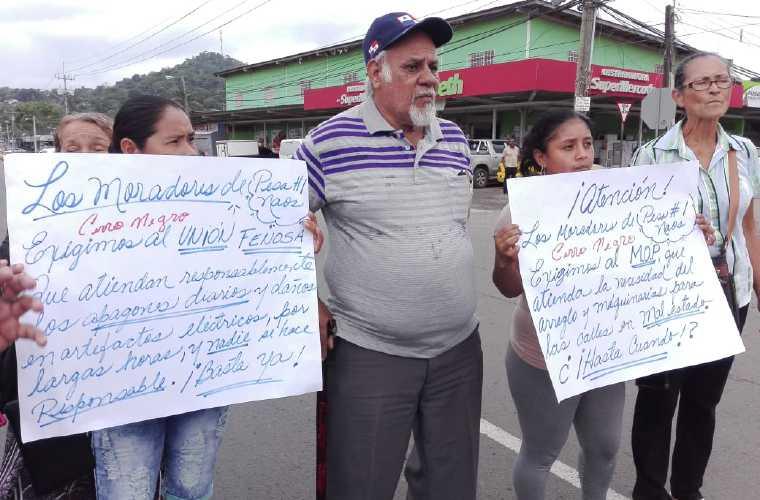 Los Moradores de Pesa #1
Naos
Cerro Negro
Exigimos al UNIÓN FENOSA
Que atiendan responsablemente
los apagones diarios y daños
en artefactos eléctricos, por
largas horas, y nadie si hace
Responsable. ¡Basta Ya!
¡Atención!
Los Moradores de Pesa #1
Naos
Cerro Negro
Exigimos al MOP, que
atienda la necesidad del
arreglo y máquinarias para
las calles en mal estado
¿¡Hasta Cuando!?
SuperMercado